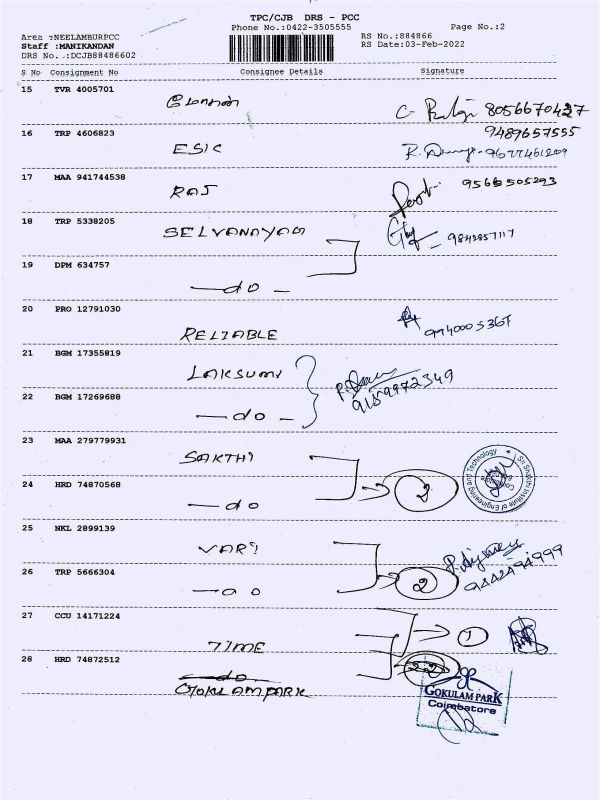 TPC/CJB DRS - PCC
Phone No.:0422-3505555
Page No.:2
Area :NEELAMBURPCC
Staff :MANIKANDAN
DRS No..:DCJB88486602
RS No.:884866
RS Date:03-Feb-2022
S No Consignment No Consignee Details Signature
15 TVR 4005701
மோகன்
8056670427
16 TRP 4606823
9489657555
ESIC
9677461209
17 MAA 941744538
RAJ
9566505293
18 TRP 5338205
SELVANAYAG
9842857117
19 DPM 634757
—do—
20 PRO 12791030
RELIABLE
9940005367
21 BGM 17355819
LAKSUMI
9159972349
22 BGM 17269688
—do—
23 MAA 279779931
SAKTHI
Sri Shakthi Institute of Engineering and Technology
24 HRD 74870568
—do
2
25 NKL 2899139
VARI
9442494999
26 TRP 5666304
—do
2
27 CCU 14171224
TIME
1
28 HRD 74872512
do
GOKULAM PARK
22
GOKULAM PARK
Coimbatore